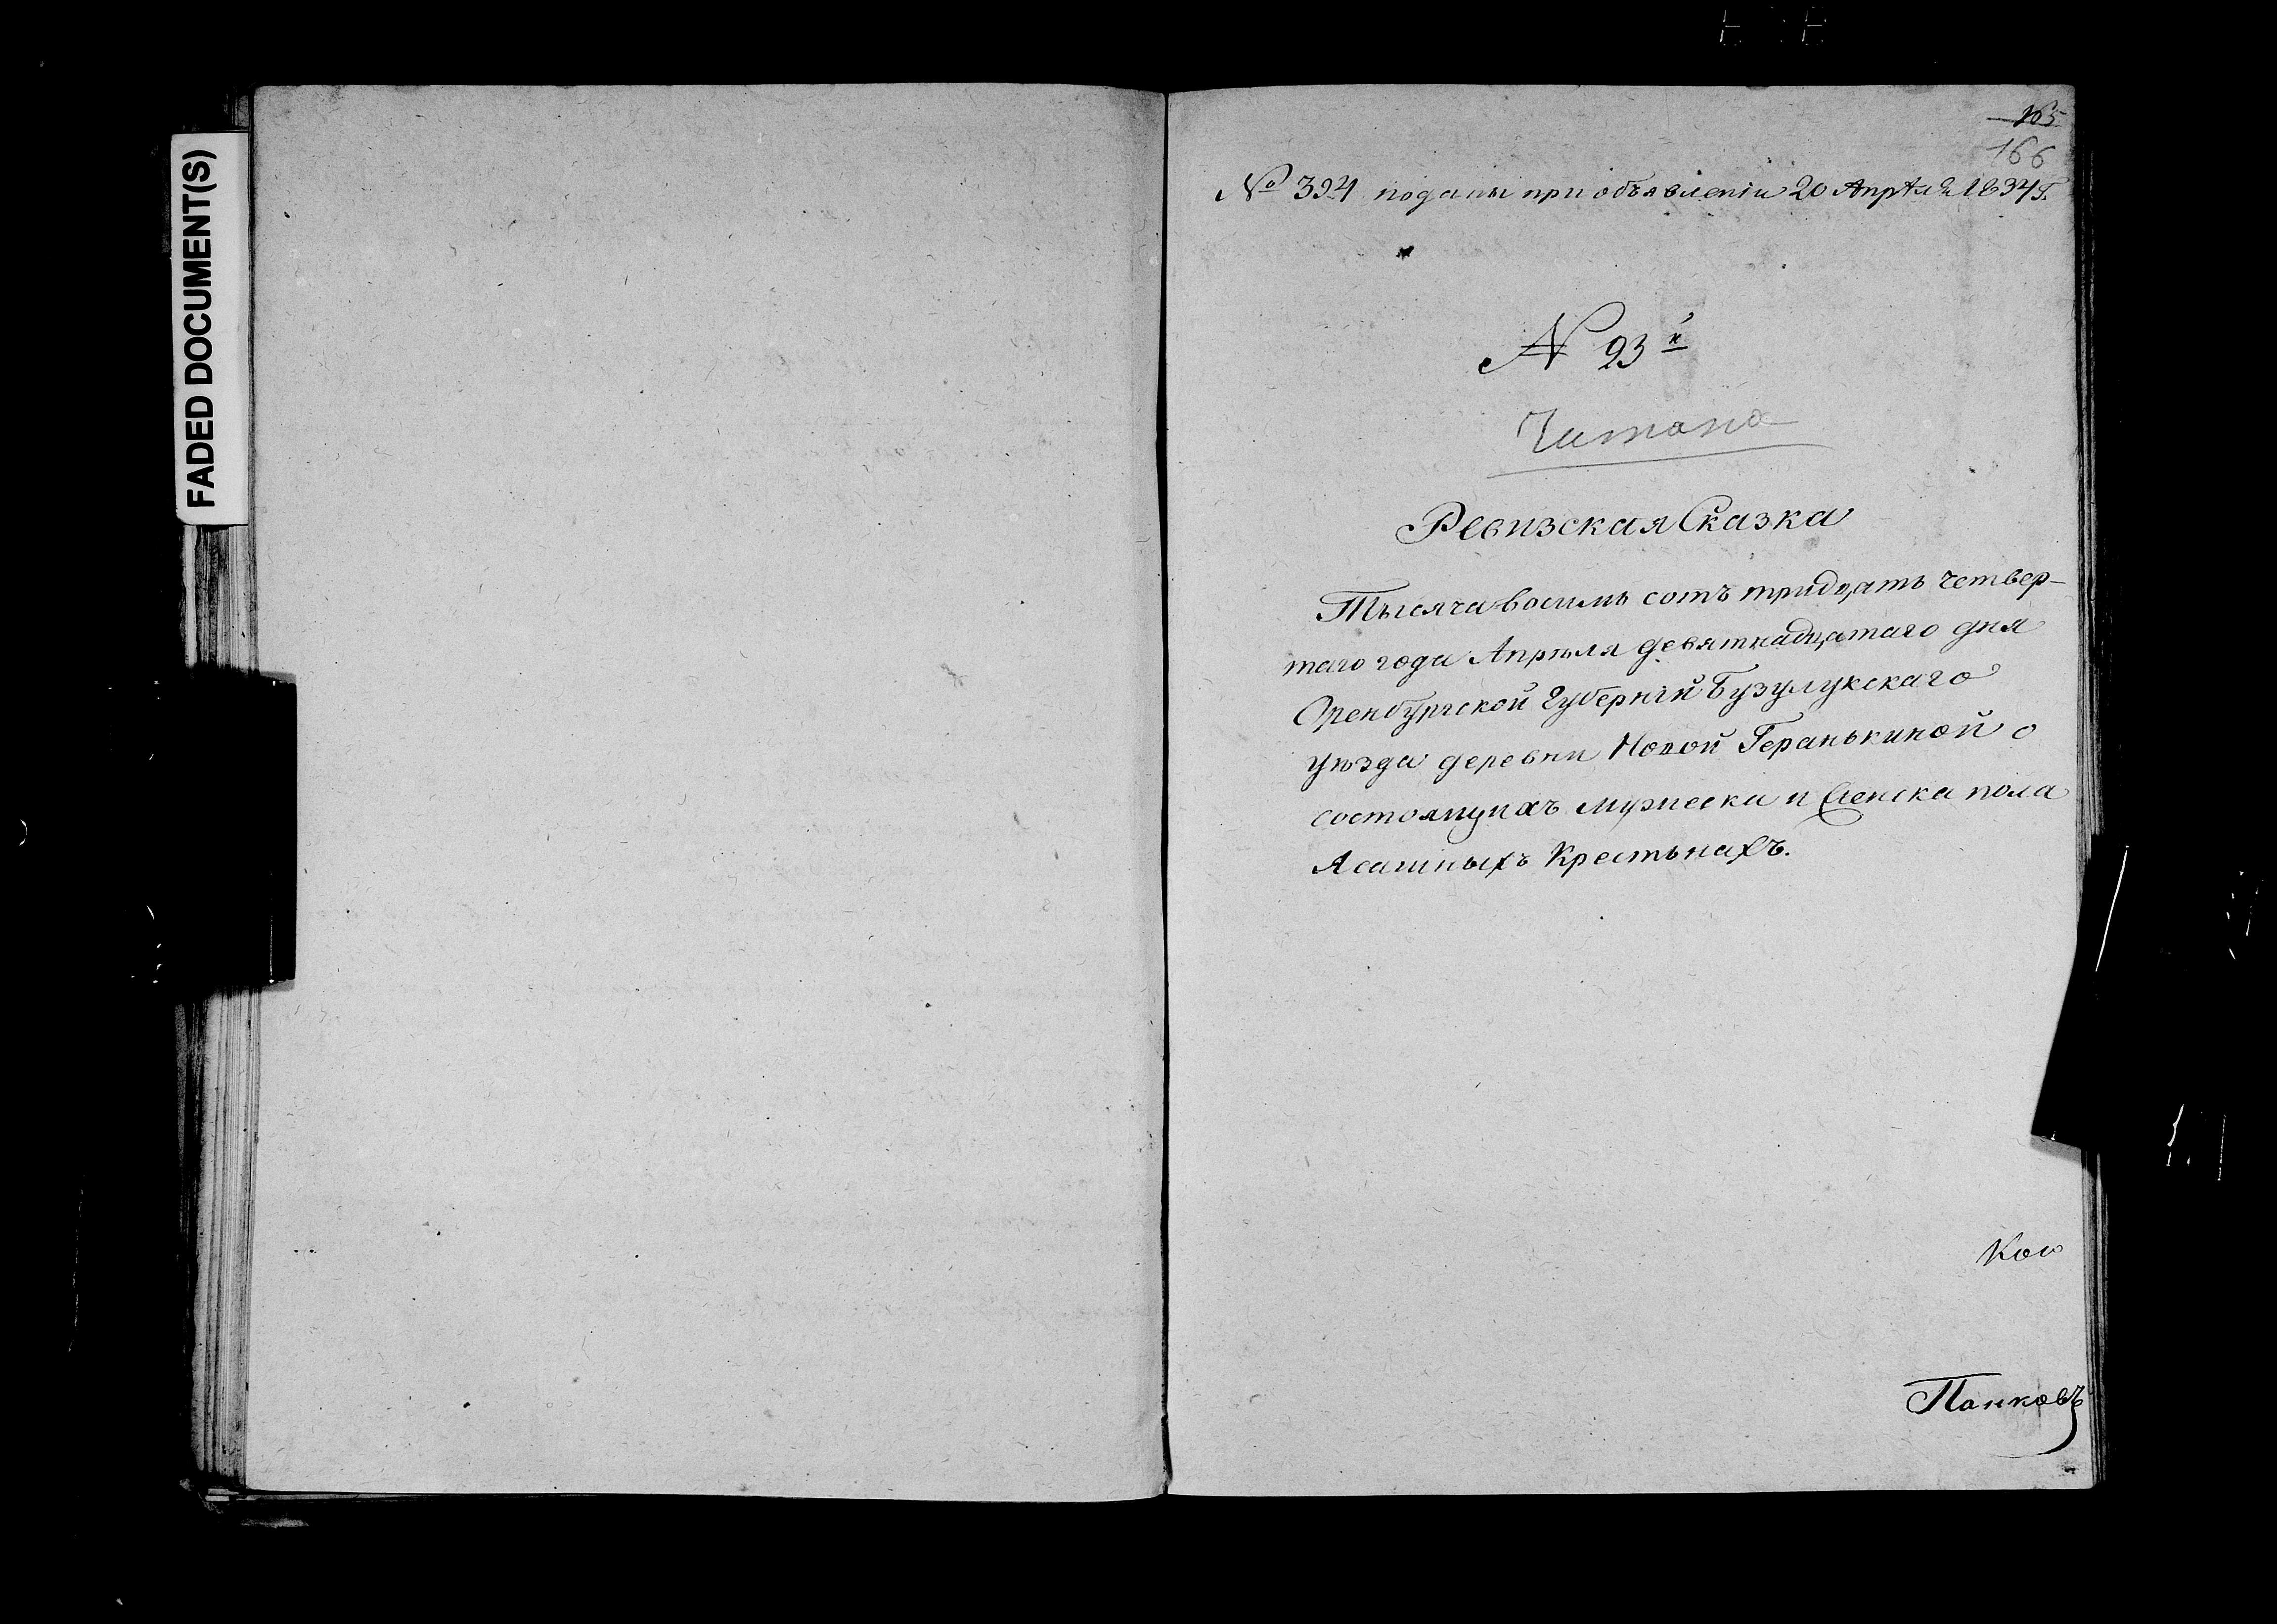 FADED DOCUMENT(S)
165
166
№ 394 поданы при объявленіи 20 Апрѣля 1834 г.
N 93й
Читано
Ревизская Сказка
Тысяча восимь сотъ тридцать четвер-
таго года Апрѣля девятнадцатаго дня
Оренбургской Губерніи Бузулукскаго
уѣзда деревни Новой Геранькиной о
состоящихъ мужеска и женска пола
Ясашныхъ Крестьнахъ.
Панковъ